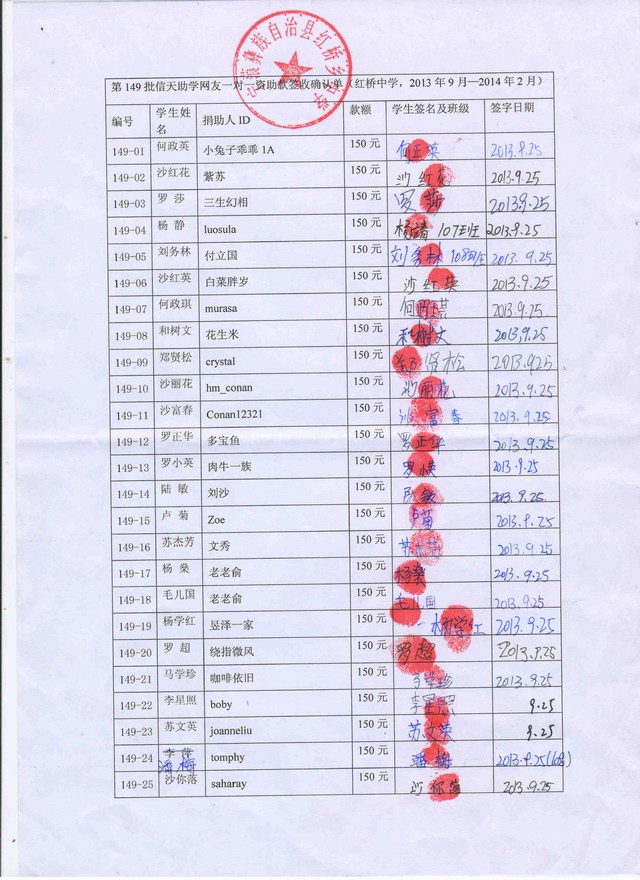 彝族自治县红桥乡
第 149 批信天助学网友一对一资助款签收确认单（红桥中学，2013 年 9 月—2014 年 2 月）
编号 学生姓名 捐助人 ID 款额 学生签名及班级 签字日期
149-01 何政英 小兔子乖乖 1A 150 元 何正英 2013.9.25
149-02 沙红花 紫苏 150 元 沙红花 2013.9.25
149-03 罗 莎 三生幻相 150 元 罗莎 2013.9.25
149-04 杨 静 luosula 150 元 杨靖 107班 2013.9.25
149-05 刘务林 付立国 150 元 刘务林 108班 2013.9.25
149-06 沙红英 白菜胖岁 150 元 沙红英 2013.9.25
149-07 何政琪 murasa 150 元 2013.9.25
149-08 和树文 花生米 150 元 和树文 2013.9.25
149-09 郑贤松 crystal 150 元 郑贤松 2013.925
149-10 沙丽花 hm_conan 150 元 沙丽花 2013.9.25
149-11 沙富春 Conan12321 150 元 沙富春 2013.9.25
149-12 罗正华 多宝鱼 150 元 罗正华 2013.9.25
149-13 罗小英 肉牛一族 150 元 2013.9.25
149-14 陆 敏 刘沙 150 元 陆敏 2013.9.25
149-15 卢 菊 Zoe 150 元 2013.9.25
149-16 苏杰芳 文秀 150 元 2013.9.25
149-17 杨 燊 老老俞 150 元 杨燊 2013.9.25
149-18 毛儿国 老老俞 150 元 毛儿国 2013.9.25
149-19 杨学红 昱泽一家 150 元 杨学红 2013.9.25
149-20 罗 超 绕指微风 150 元 罗超 2013.9.25
149-21 马学珍 咖啡依旧 150 元 马学珍 2013.9.25
149-22 李星照 boby 150 元 李星照 9.25
149-23 苏文英 joanneliu 150 元 苏文英 9.25
149-24 李 萍 潘梅 tomphy 150 元 潘梅 2013.9.25
149-25 沙你落 saharay 150 元 沙你落 2013.9.25